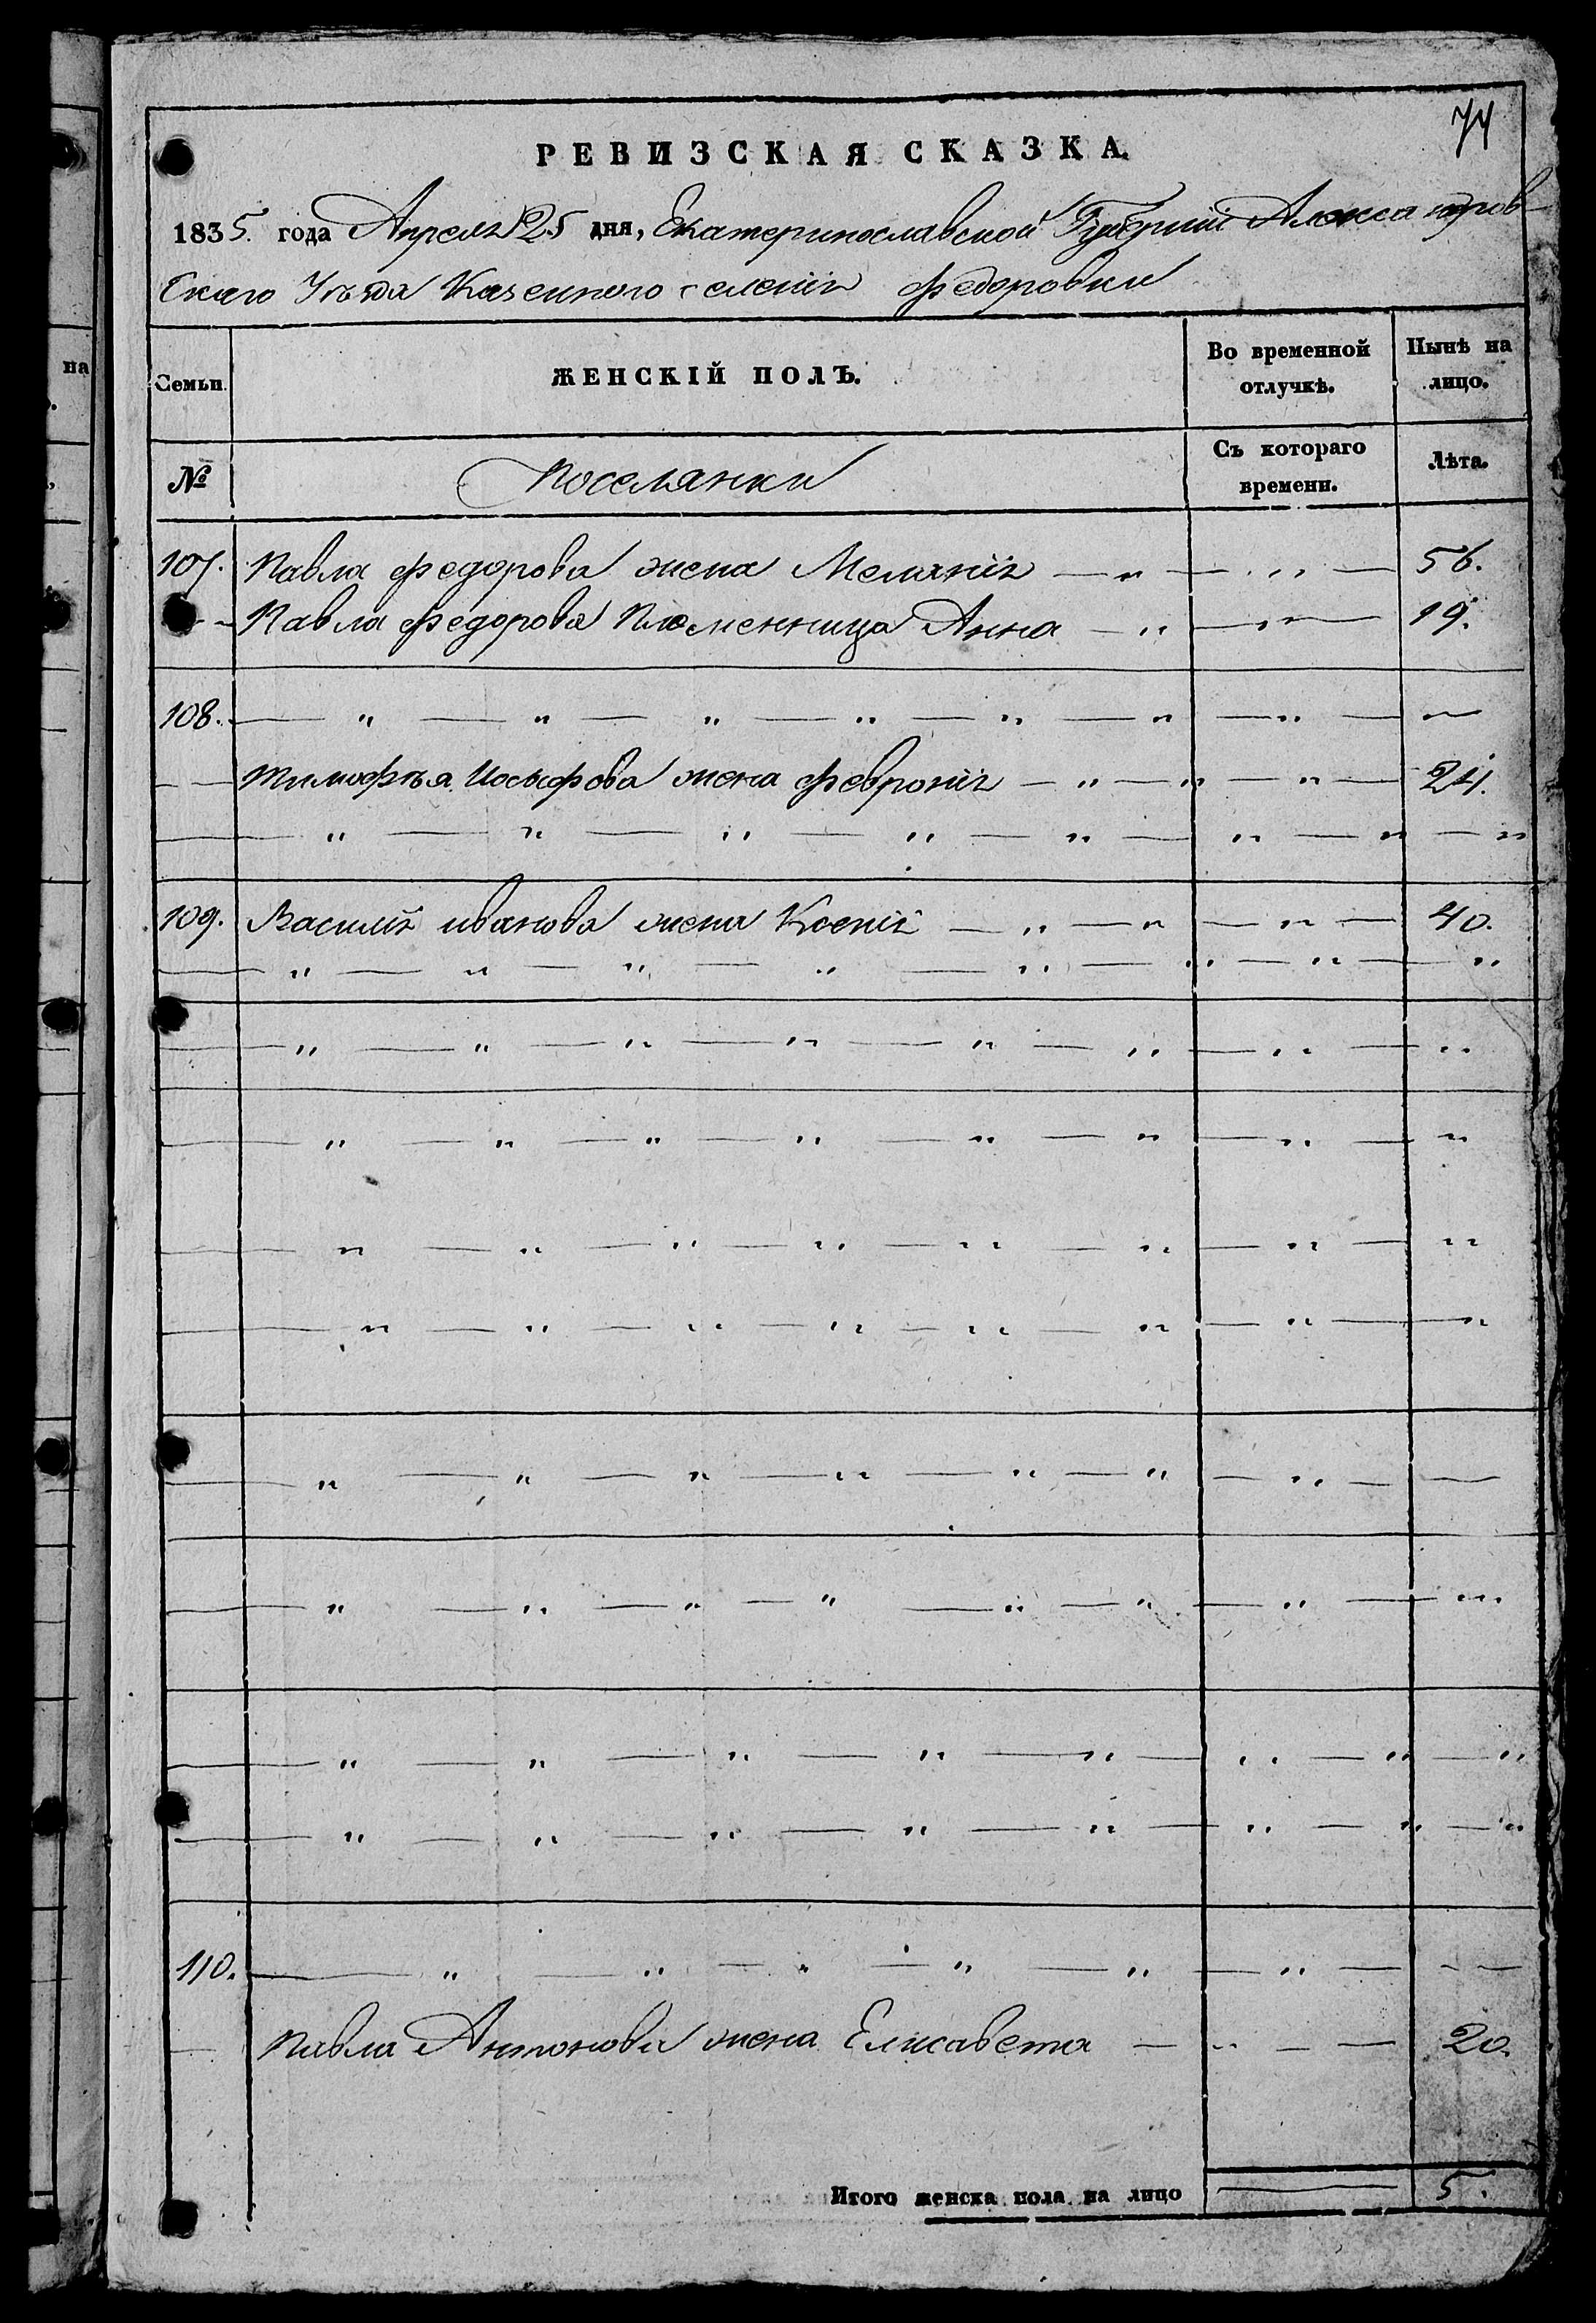 74
РЕВИЗСКАЯ СКАЗКА.
1835. года Апреля 25 дня, Екатеринославской Губернии Александров-
скаго Уѣзда Казенного селенія Федоровки
Семьи. ЖЕНСКІЙ ПОЛЪ. Во временной отлучкѣ. Нынѣ на лицо.
№ Поселянки Съ котораго времени. Лѣта.
107. Павла Федорова жена Меланія — „ — „ — 56.
- - Павла Федорова Племенница Анна — „ — „ — 19.
108. — „ — „ — „ — „ — „ — „ — „ — —
- — Тимофѣя Иосыфова жена Феврония — „ — „ — „ — 24.
— „ — „ — „ — „ — „ — „ — „ — „
109. Василія иванова жена Ксенія — „ — „ — „ — 40.
— „ — „ — „ — „ — „ — „ — „ — „
— „ — „ — „ — „ — „ — „ — „ — „
— „ — „ — „ — „ — „ — „ — „ — „
— „ — „ — „ — „ — „ — „ — „ — „
— „ — „ — „ — „ — „ — „ — „ — „
— „ — „ — „ — „ — „ — „ — „ — —
— „ — „ — „ — „ — „ — „ — „ — „
— „ — „ — „ — „ — „ — „ — „ — „
— „ — „ — „ — „ — „ — „ — „ — „
110. — „ — „ — „ — „ — „ — „ — - —
— Павла Антонова жена Елисавета — „ — — 20.
Итого женска пола на лицо — 5.
на